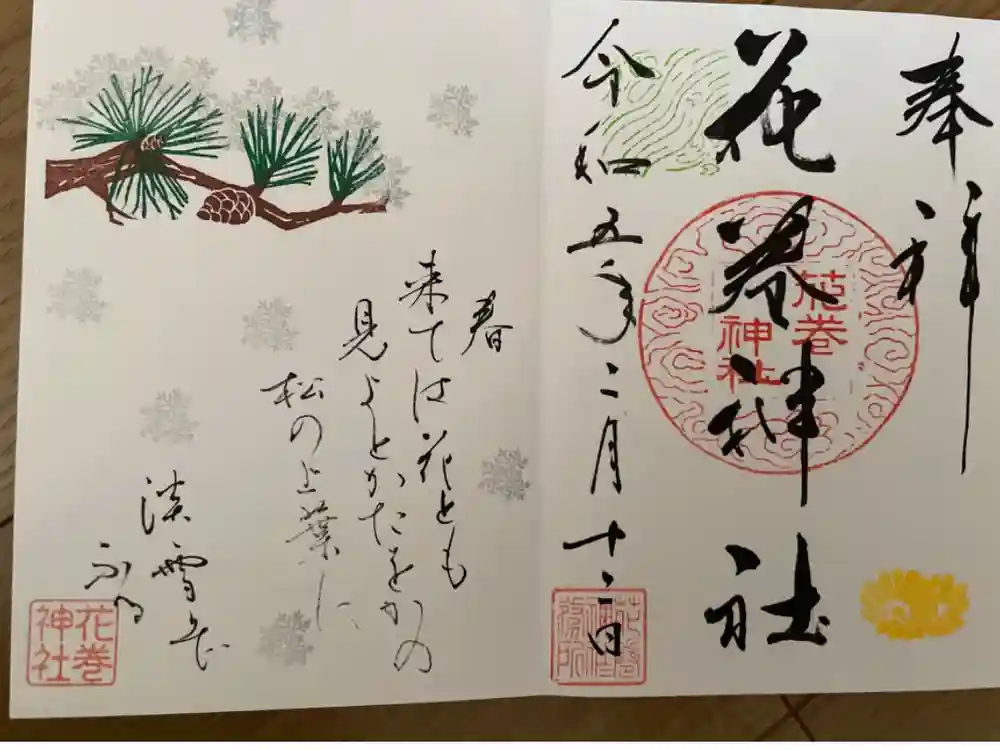 奉拝
花巻神社
花巻
神社
令和五年二月十二日
春
来ては花とも
見よとかたをかの
松の上葉に
淡雪ぞ
ふる
花巻
神社